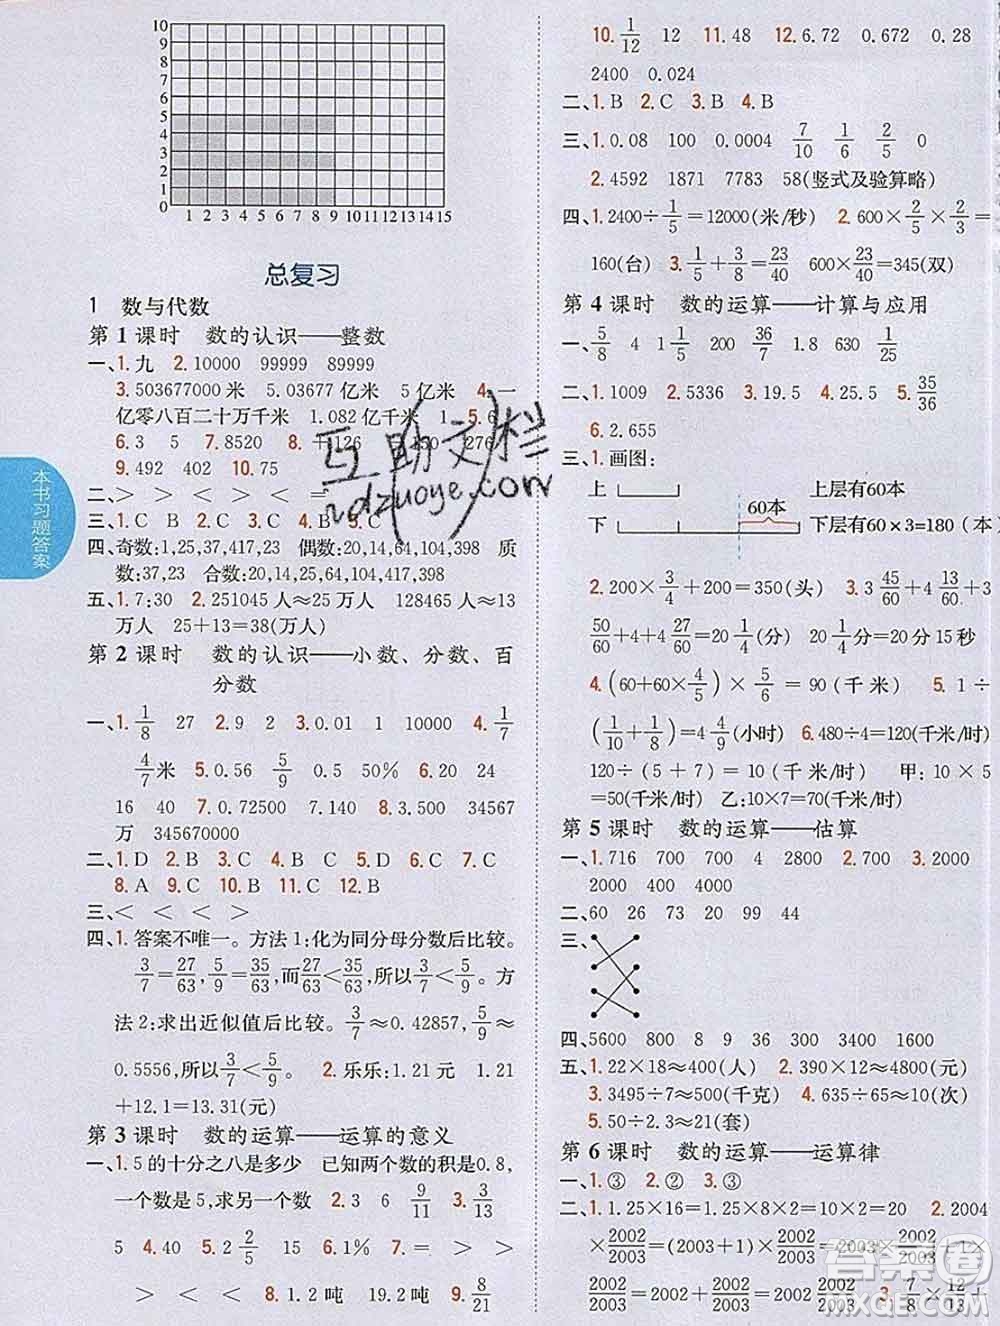 10
9
8
7
6
5
4
3
2
1
0
1 2 3 4 5 6 7 8 9 10 11 12 13 14 15
总复习
1 数与代数
第1课时 数的认识——整数
一、1.九 2.10000 99999 89999
3.503677000米 5.03677亿米 5亿米 4.一
亿零八百二十万千米 1.082亿千米 1 5.6
6.3 5 7.8520 8. 126 150 276
9.492 402
二、> > > < < =
三、1.C 2.C 3.C 4.B 5.C
四、奇数:1,25,37,417,23 偶数:20,14,64,104,398 质
数:37,23 合数:20,14,25,64,104,417,398
五、1.7:30 2.251045人≈25万人 128465人≈13
万人 25+13=38(万人)
第2课时 数的认识——小数、分数、百
分数
一、1.1/8 27 2.9 2 3.0.01 1 10000 4.1/7
4/7米 5.0.56 5/9 0.5 50% 6.20 24
16 40 7.0.72500 7.140 8.0.83 34567
万 345670000
二、1.D 2.B 3.C 4.B 5.C 6.C 7.B
8.A 9.C 10.B 11.C 12.B
三、< < < >
四、1.答案不唯一。方法1:化为同分母分数后比较。
3/7=27/63,5/9=35/63,而27/63<35/63,所以3/7<5/9。方
法2:求出近似值后比较。3/7≈0.42857,5/9≈
0.5556,所以3/7<5/9。 2.乐乐:1.21元 1.21
+12.1=13.31(元)
第3课时 数的运算——运算的意义
一、1.5的十分之八是多少 已知两个数的积是0.8,
一个数是5,求另一个数 2.3 6 9/11 3.9/11
5 4.40 5.2 2/5 15 6.1% 7.= > >
< > > 8.1.2吨 19.2吨 9.8/21
10.1/12 12 11.48 12.6.2 0.672 0.28
2400 0.024
二、1.B 2.C 3.B 4.B
三、1.0.08 100 0.0004 7/10 1/4 8/25 0
2.4592 1871 7783 58(竖式及验算略)
四、1.2400÷1/5=12000(米/秒) 2.600×2/5×2/3=
160(台) 3.1/5+3/8=23/40 600×23/40=345(双)
第4课时 数的运算——计算与应用
一、5/8 4 1 1/5 200 36/7 1.8 630 1/25
二、1.1009 2.5336 3.19.5 4.25.5 5.35/36
6.2.655
三、1.画图:
上 上层有60本
下 60本 下层有60×3=180(本
2.200×3/4+200=350(头) 3.3 45/60+4 13/60+3
50/60+4+4 27/60=20 1/4(分) 20 1/4分=20分15秒
4.(60+60×4/5)×5/6=90(千米) 5.1÷
(1/10+1/8)=4 4/9(小时) 6.480÷4=120(千米/时)
120÷(5+7)=10(千米/时) 甲:10×5
=50(千米/时) 乙:10×7=70(千米/时)
第5课时 数的运算——估算
一、1.716 700 700 4 2800 2.700 3.2000
2000 400 400
二、60 26 73 20 99 44
三、
四、5600 800 8 9 36 300 3400 1600
五、1.22×18≈400(人) 2.390×12≈4800(元)
3.3495÷7≈500(千克) 4.635÷65≈10(次)
5.50÷2.3≈21(套)
第6课时 数的运算——运算律
一、1.③ 2.② 3.③
二、1.1.25×16=1.25×8×2=10×2=20 2.2004
×2002/2003=(2003+1)×2002/2003=2003×2002/2003+1×
2002/2003=2002+2002/2003=2002 2002/2003 3.7/8×12/13+
本书习题答案
互助文栏
答案圈
MXQE.COM